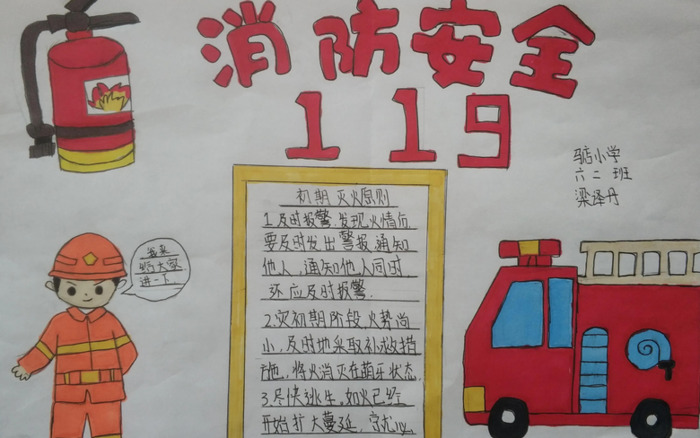 消防安全
119
驲店小学
六二 班
梁译丹
我来
给大家
讲一下
初期灭火原则
1.及时报警,发现火情后
要及时发出警报通知
他人,通知他人同时,
还应及时报警.
2.灾初期阶段,火势尚
小,及时地采取补救措
施,将火消灭在萌牙状态
3.尽快逃生,如火已经
开始扩大蔓延,